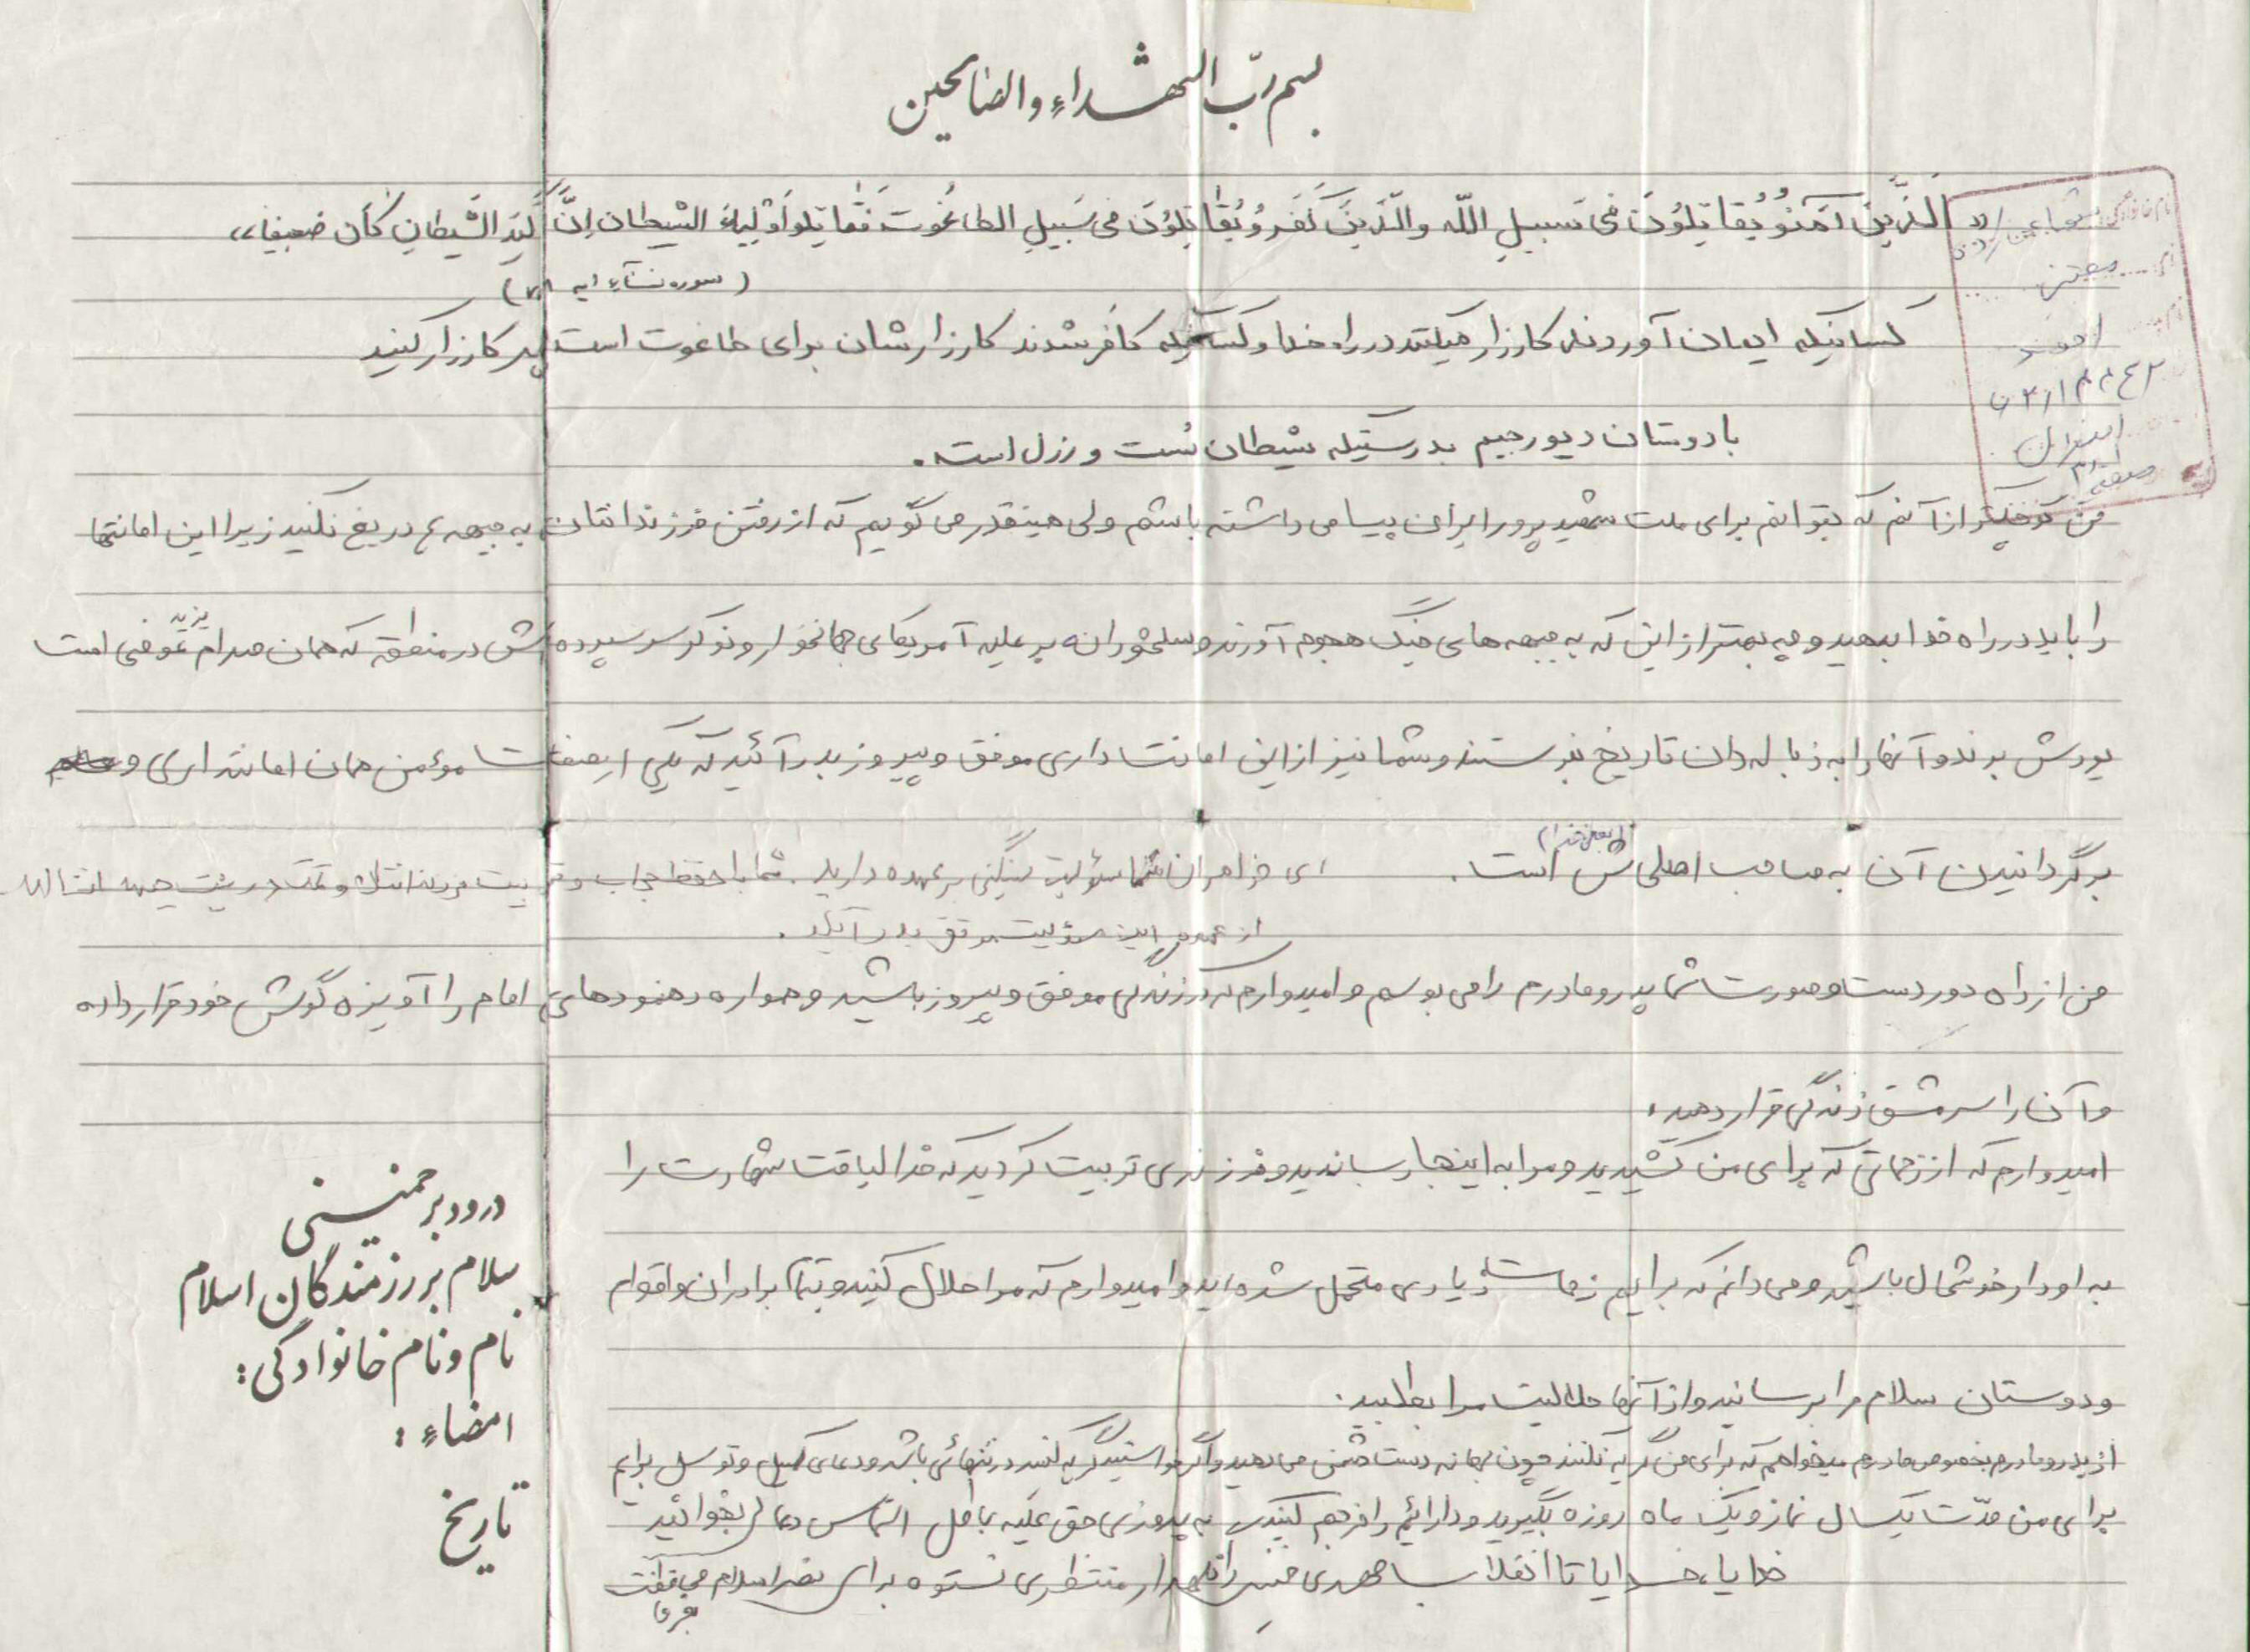 بسم ربّ الشهداءِ والصالحین
«الَّذینَ آمَنُو یُقاتِلُونَ فی سَبیلِ اللّه والَّذینَ کَفَرو یُقاتِلُونَ فی سَبیلِ الطاغُوت فَقاتِلو اَوْلِیاءَ الشیطان اِنَّ کَیدَ الشَّیطانِ کانَ ضعیفا»
(سوره نساء آیه
کسانیکه ایمان آوردند کارزار میکنند در راه خدا و کسانیکه کافر شدند کارزارشان برای طاغوت است پس کارزار کنید
با دوستان دیو رجیم بدرستیکه شیطان سُست و رزل است.
من کوچکتر از آنم که بتوانم برای ملت شهید پرور ایران پیامی داشته باشم ولی همینقدر می گویم که از رفتن فرزندانتان به جبهه ع دریغ نکنید زیرا این امانتها
را باید در راه خدا بدهید و چه بهتر از این که به جبهه های جنگ هجوم آورند و سلحشورانه بر علیه آمریکای جهانخوار و نوکر سرسپرده اش در منطقه که همان صدام یزید عوضی است
یورش برند و آنها را به زباله دان تاریخ بفرستند و شما نیز از این امانت داری موفق و پیروز بدر آئید که یکی از صفات مؤمن همان امانتداری و
برگردانیدن آن به صاحب اصلی ش (یعنی خدا) است. ای خواهران شما مسئولیت سنگینی بر عهده دارید. شما با حفظ حجاب و تربیت فرزندانتان و کمک در پشت جبهه انشاالله
از عهده این مسؤلیت موفق بدر آیید.
من از راه دور دست و صورت شما پدر و مادرم را می بوسم و امیدوارم که در زندگی موفق و پیروز باشید و همواره رهنمودهای امام را آویزه گوش خود قرار داده
و آن را سرمشق زندگی قرار دهید.
امیدوارم که از زحماتی که برای من کشیدید و مرا به اینجا رساندید و فرزندی تربیت کردید که خدا لیاقت شهادت را
به او داد خوشحال باشید و می دانم که برایم زحمات زیادی متحمل شده اید و امیدوارم که مرا حلال کنید و بتمام برادران و اقوام
و دوستان سلام مرا برسانید و از آنها حلالیت مرا بطلبید.
از پدر و مادرم بخصوص مادرم میخواهم که برای من گریه نکنند چون بهانه دست دشمن می دهید و اگر خواستید گریه کنید در تنهائی باشد و دعای کمیل و توسل برایم
برای من مدّت یکسال نماز و یک ماه روزه بگیرید و به پیروزی حق علیه باطل التماس دعا بخوانید
خدایا خدایا تا انقلاب مهدی خمینی را نگهدار منتظری نستوه برای نصر اسلام محافظت
بفرما
درود بر خمینی
سلام بر رزمندگان اسلام
نام و نام خانوادگی:
امضاءِ :
تاریخ
نام خانوادگی
نام
احمد